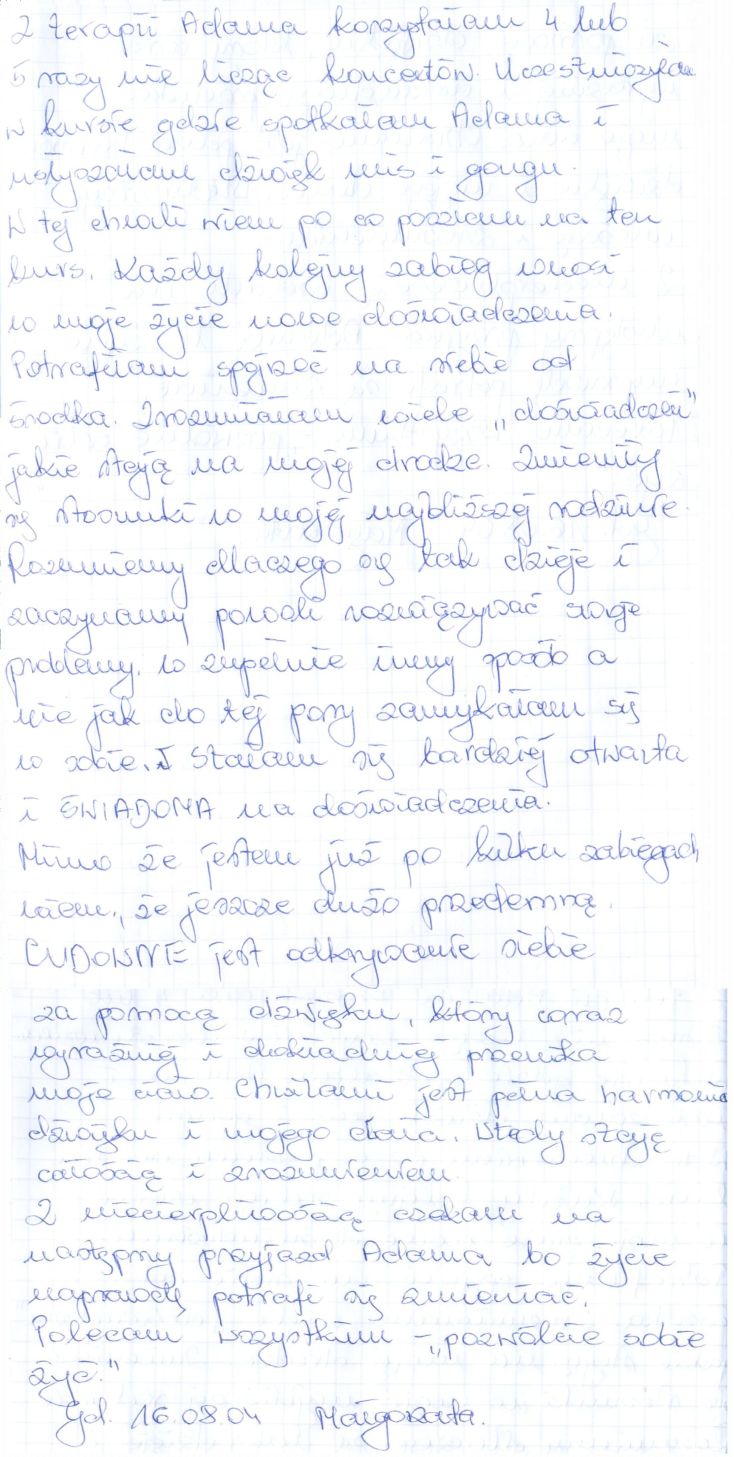 Z terapii Adama korzystałam 4 lub
5 razy nie licząc koncertów. Uczestniczyłam
w kursie gdzie spotkałam Adama i
usłyszałam dźwięk mis i gongu.
W tej chwili wiem po co poszłam na ten
kurs. Każdy kolejny zabieg wnosi
w moje życie nowe doświadczenia.
Potrafiłam spojrzeć na siebie od
środka. Zrozumiałam wiele „doświadczeń"
jakie stoją na mojej drodze. Zmieniły
się stosunki w mojej najbliższej rodzinie.
Rozumiemy dlaczego się tak dzieje i
zaczynamy powoli rozwiązywać swoje
problemy, w zupełnie inny sposób a
nie jak do tej pory zamykałam się
w sobie. Stałam się bardziej otwarta
i ŚWIADOMA na doświadczenia.
Mimo że jestem już po kilku zabiegach
wiem, że jeszcze dużo przedemną.
CUDOWNE jest odkrywanie siebie
za pomocą dźwięku, który coraz
wyraźniej i dokładniej przenika
moje ciało. Chwilami jest pełna harmonia
dźwięku i mojego ciała. Wtedy staję
całością i zrozumieniem.
Z niecierpliwością czekam na
następny przyjazd Adama bo życie
naprawdę potrafi się zmieniać.
Polecam wszystkim – „pozwólcie sobie
żyć."
Gd. 16.08.04 Małgorzata.